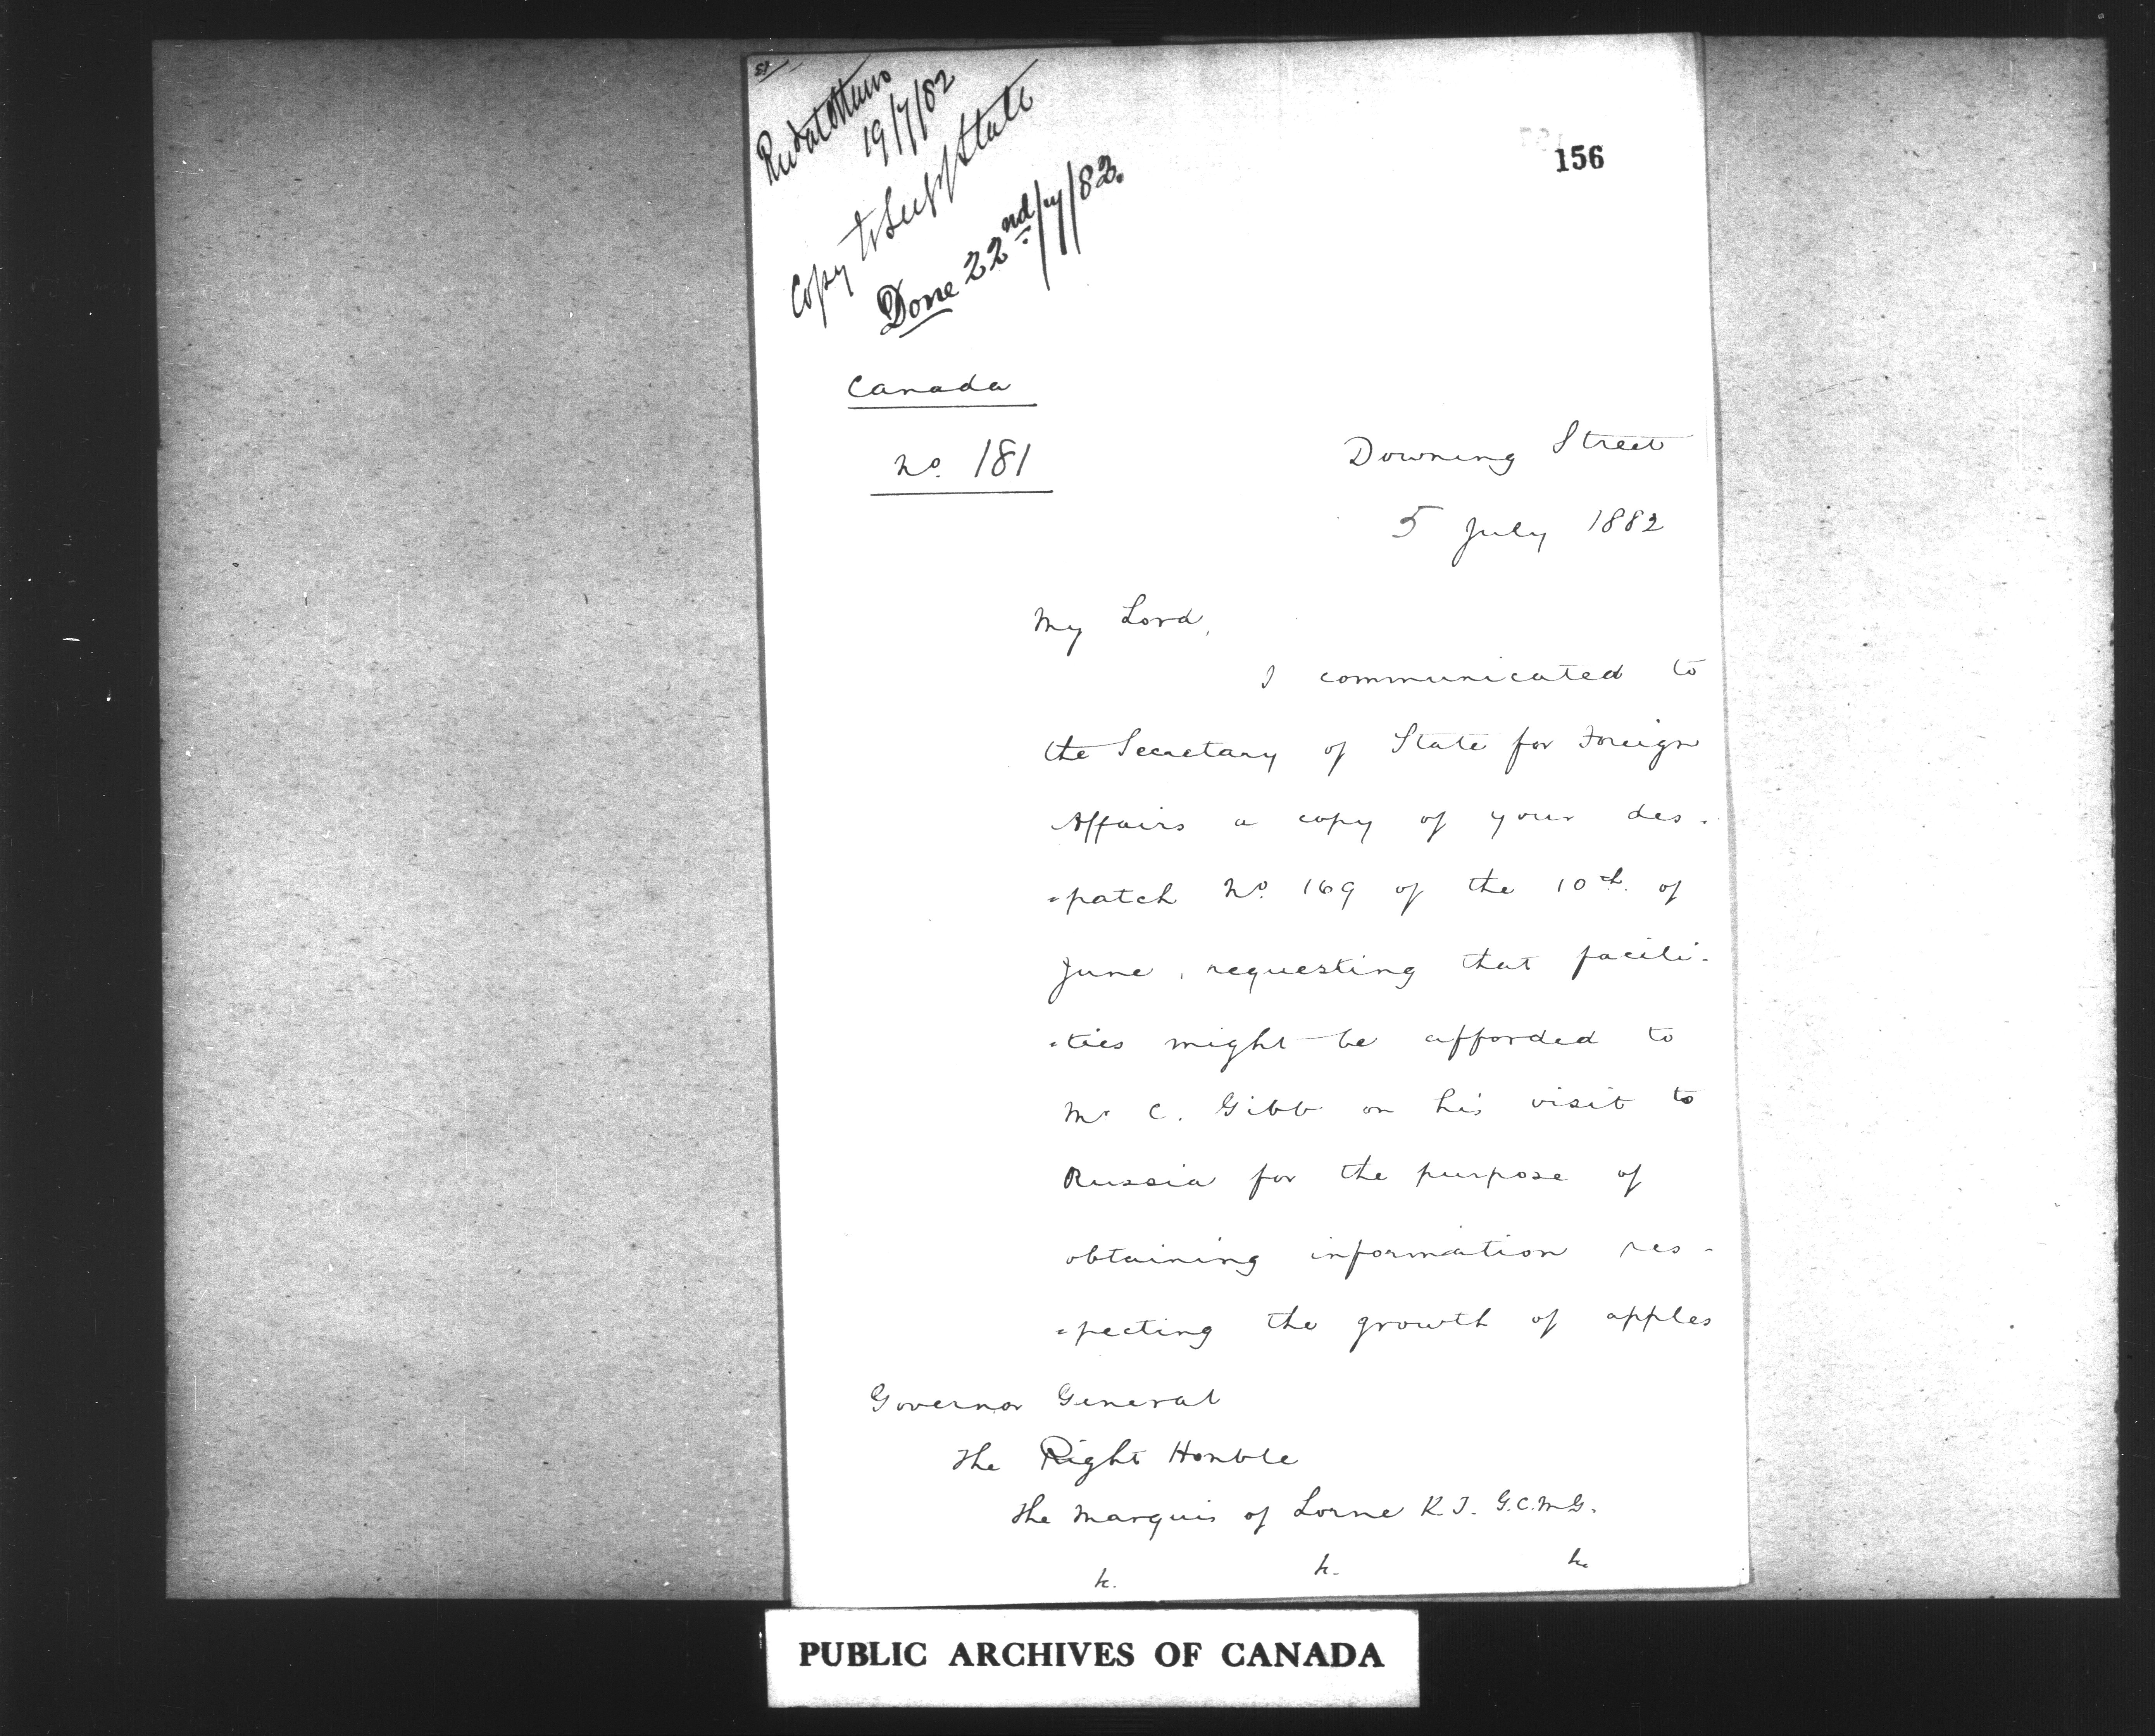 Recd at Ottawa
19/7/82
Copy to Secy of State
Done 22nd/7/82.
156
Canada
No. 181
Downing Street
5 July 1882
My Lord,
I communicated to
the Secretary of State for Foreign
Affairs a copy of your des-
=patch No. 169 of the 10th. of
June, requesting that facili-
-ties might be afforded to
Mr C. Gibb on his visit to
Russia for the purpose of
obtaining information res-
=pecting the growth of apples
Governor General
The Right Honble
The Marquis of Lorne K.T. G.C.M.G.
&c. &c. &c.
PUBLIC ARCHIVES OF CANADA